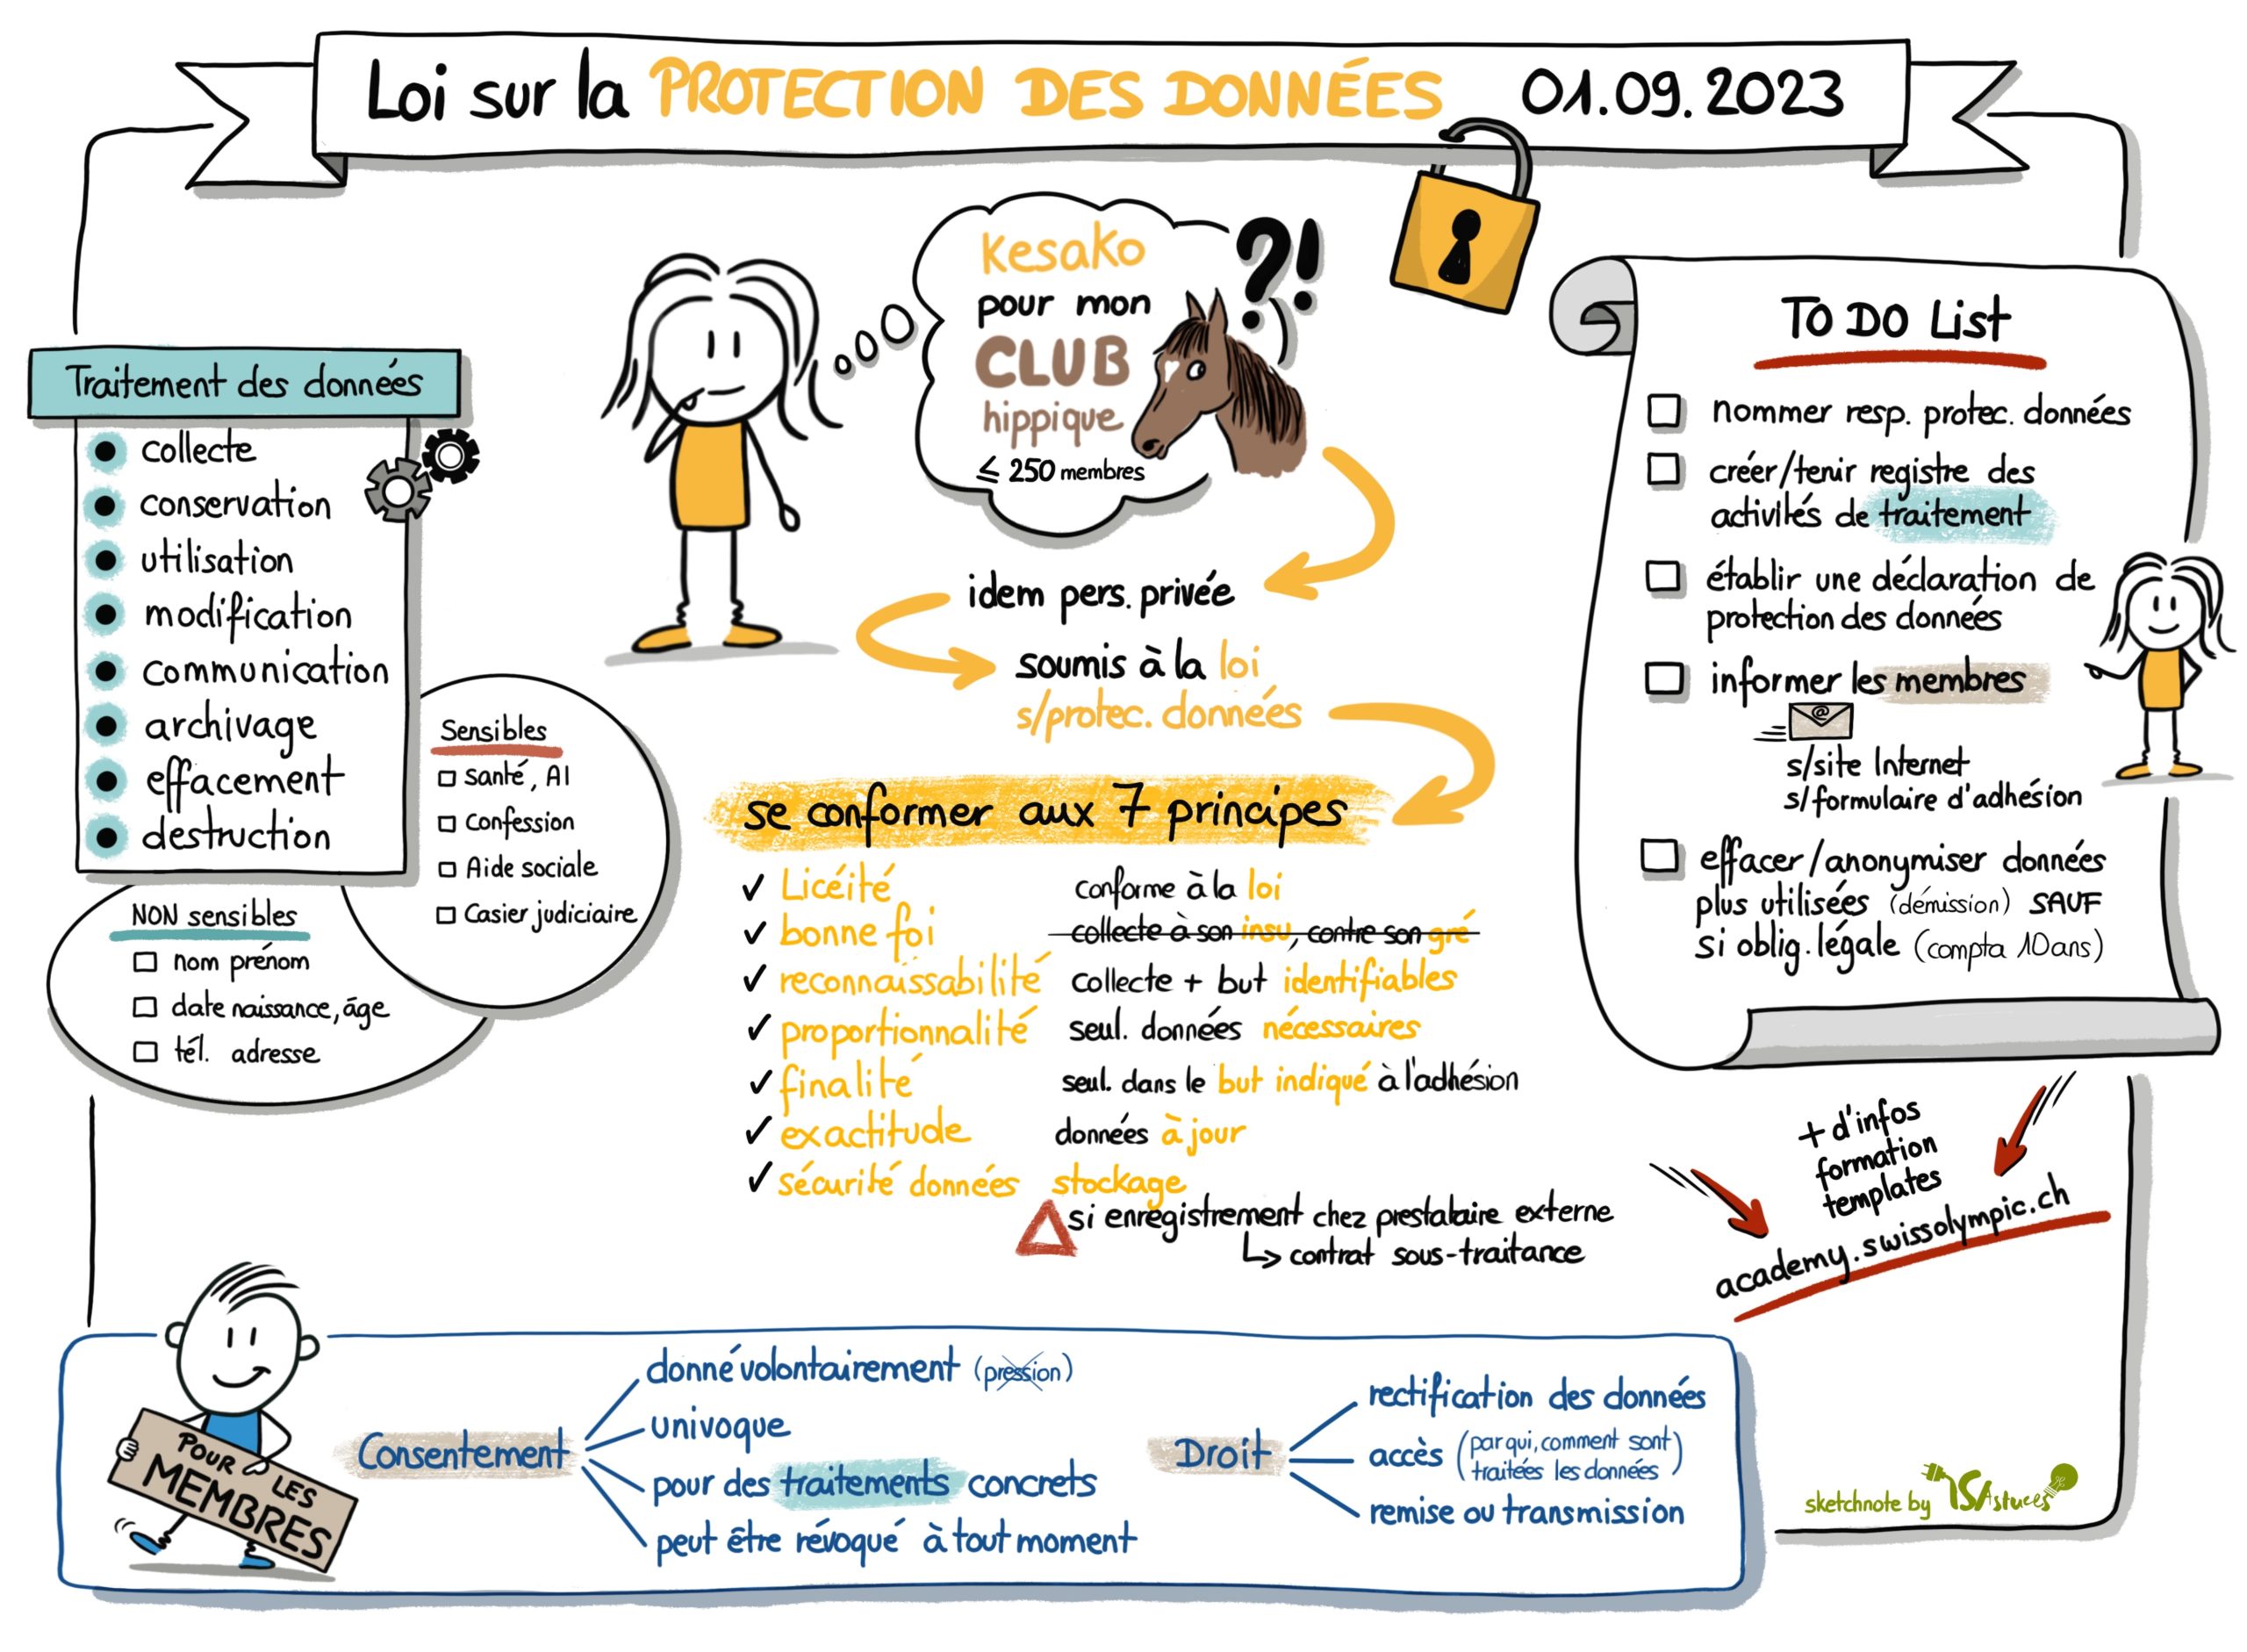 Loi sur la PROTECTION DES DONNÉES 01.09.2023
Kesako
pour mon
CLUB
hippique
≤ 250 membres
?!
idem pers. privée
soumis à la loi
s/protec. données
Traitement des données
collecte
conservation
utilisation
modification
communication
archivage
effacement
destruction
Sensibles
santé, AI
Confession
Aide sociale
Casier judiciaire
NON sensibles
nom prénom
date naissance, âge
tél. adresse
se conformer aux 7 principes
✓ Licéité conforme à la loi
✓ bonne foi collecte à son insu, contre son gré
✓ reconnaissabilité collecte + but identifiables
✓ proportionnalité seul. données nécessaires
✓ finalité seul. dans le but indiqué à l'adhésion
✓ exactitude données à jour
✓ sécurité données stockage
si enregistrement chez prestataire externe
↳ contrat sous-traitance
TO DO List
nommer resp. protec. données
créer/tenir registre des
activités de traitement
établir une déclaration de
protection des données
informer les membres
@
s/site Internet
s/formulaire d'adhésion
effacer/anonymiser données
plus utilisées (démission) SAUF
si oblig. légale (compta 10ans)
+ d'infos
formation
templates
academy.swissolympic.ch
POUR LES
MEMBRES
Consentement
donné volontairement (pression)
univoque
pour des traitements concrets
peut être révoqué à tout moment
Droit
rectification des données
accès (par qui, comment sont
traitées les données)
remise ou transmission
sketchnote by ISAstuces